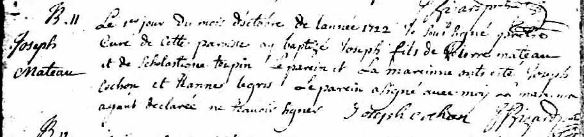 B. 11
Joseph
Mateau
Le 1er jour du mois d'octobre de Lannée 1722 Je Sous signé
Curé de Cette paroisse ay baptizé Joseph fils de Pierre mateau
et de Scholastique trepin Le parein et La mareinne ont eté Joseph
Cochon et Jeanne legris Le parein a signé avec moy La
ayant declarée ne Scavoir signer Joseph cochon